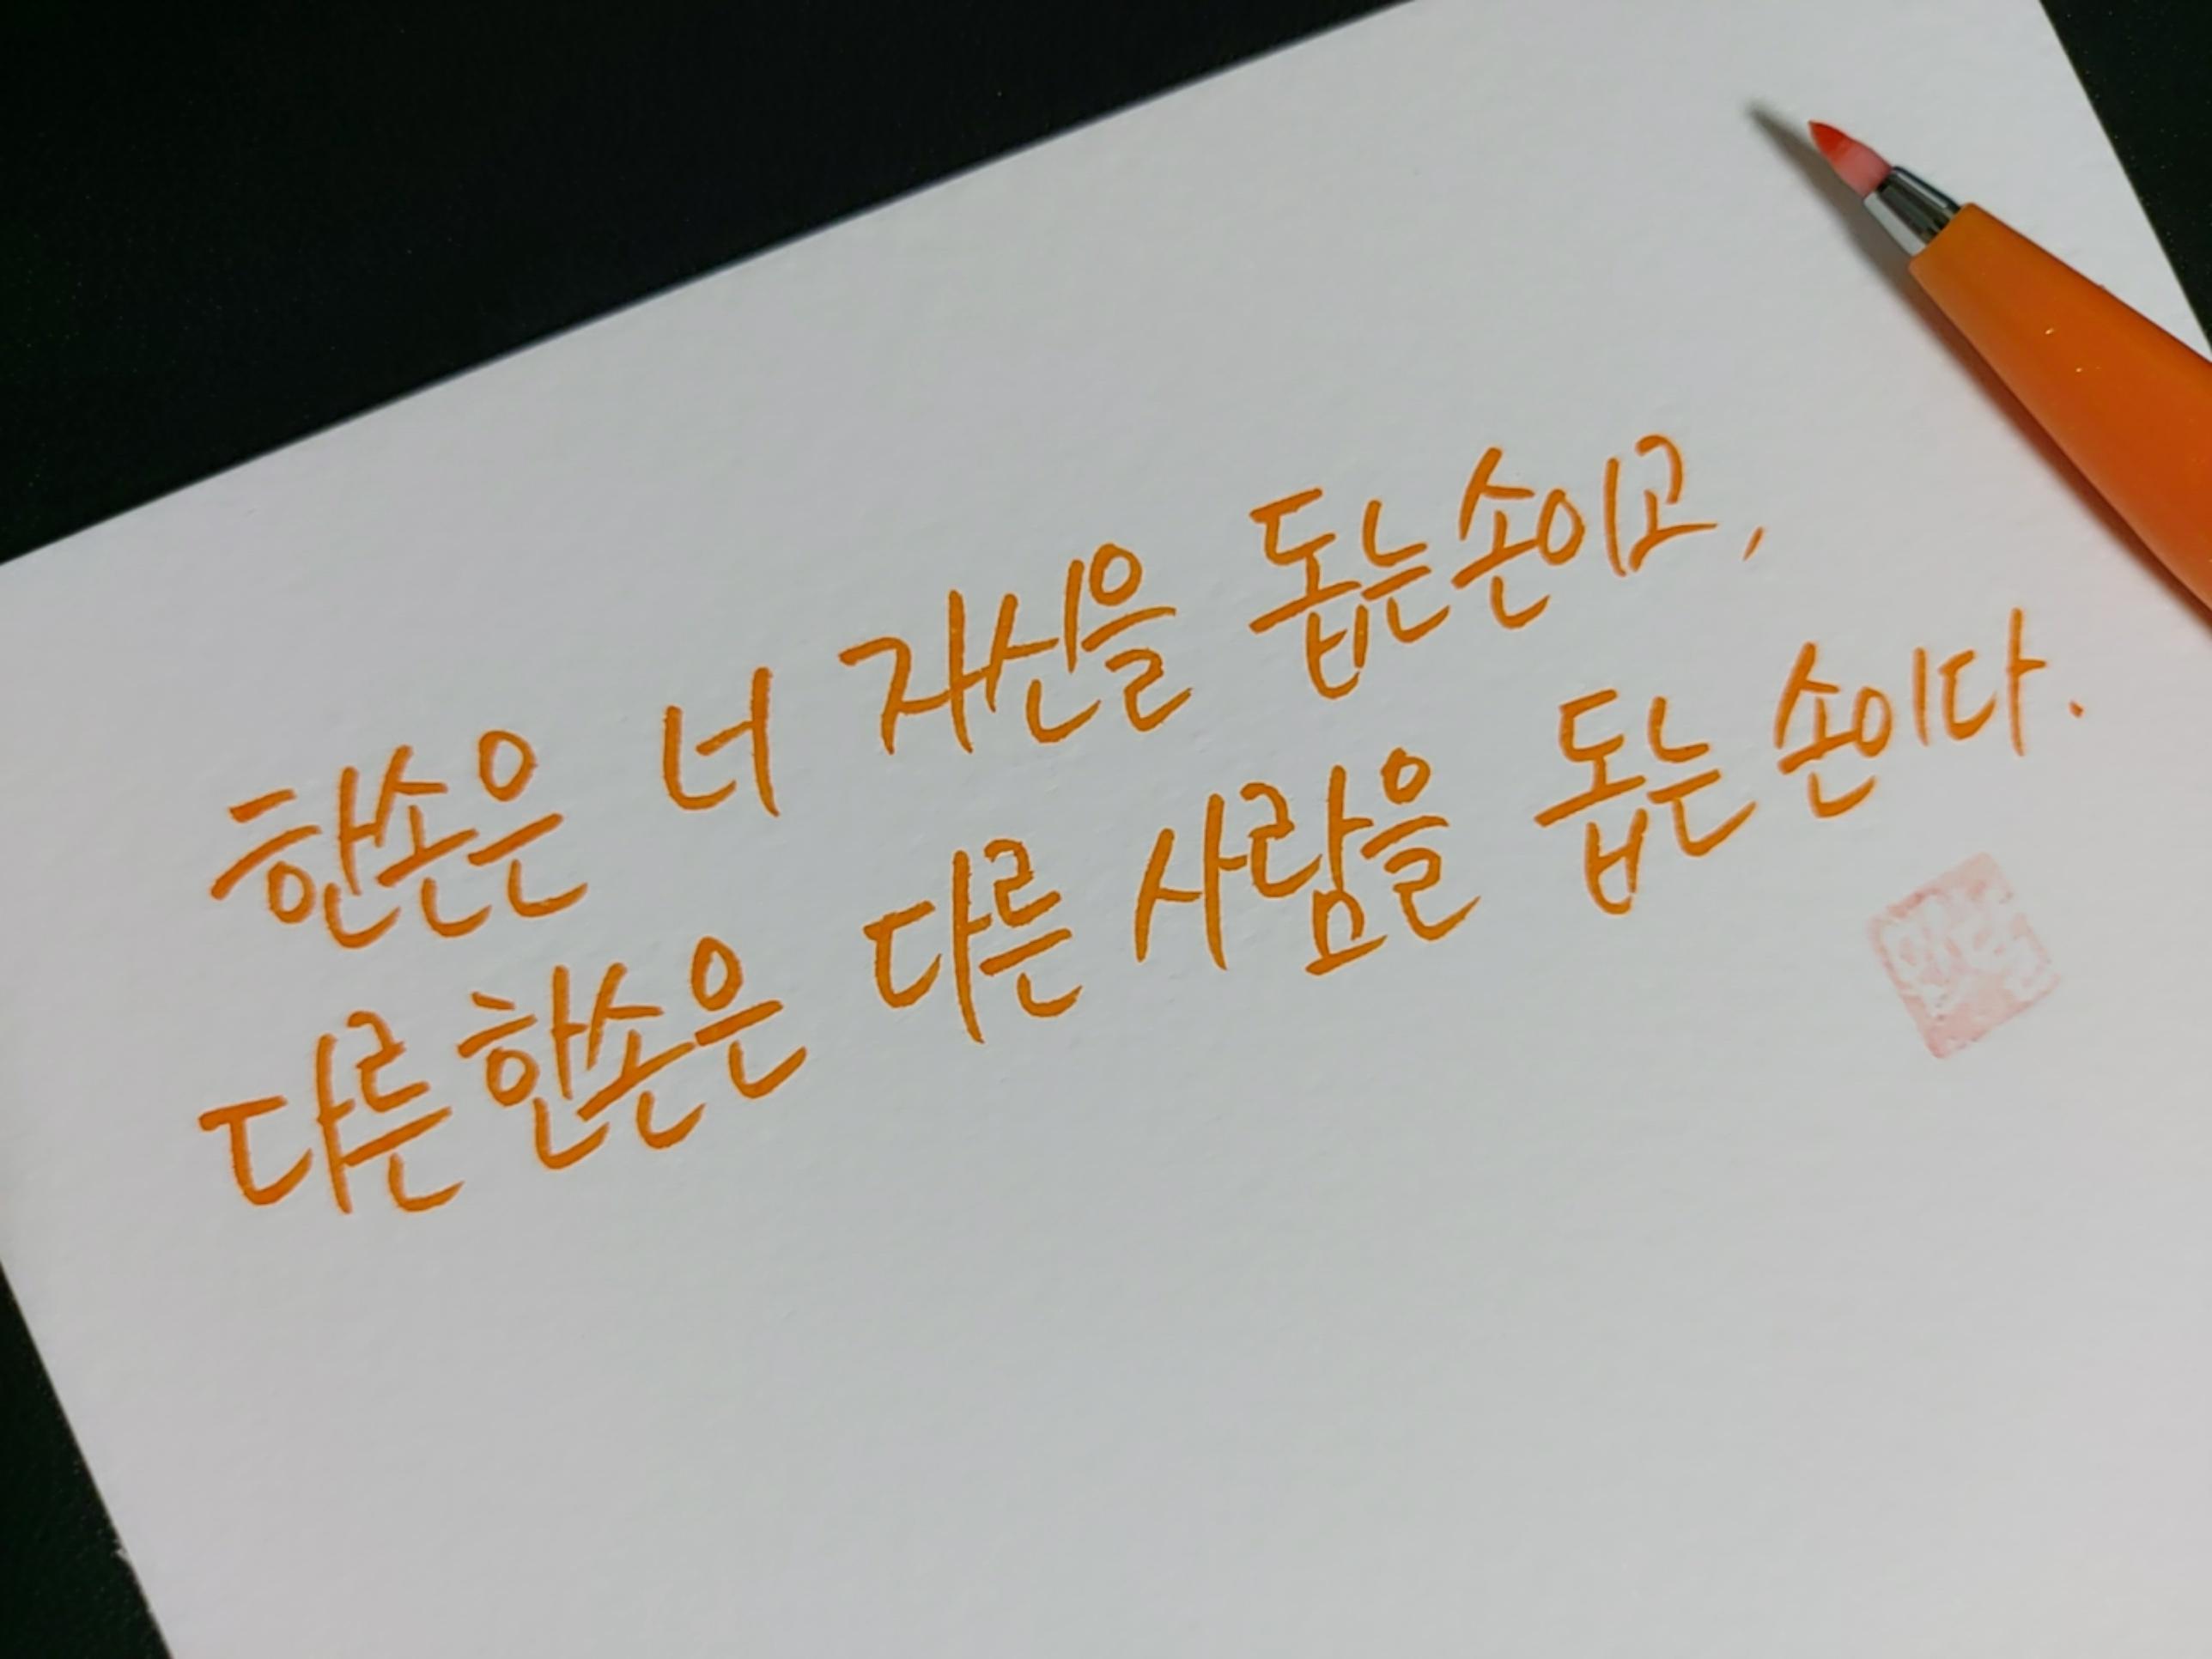 한손은 너 자신을 돕는 손이고,
다른 한손은 다른 사람을 돕는 손이다.